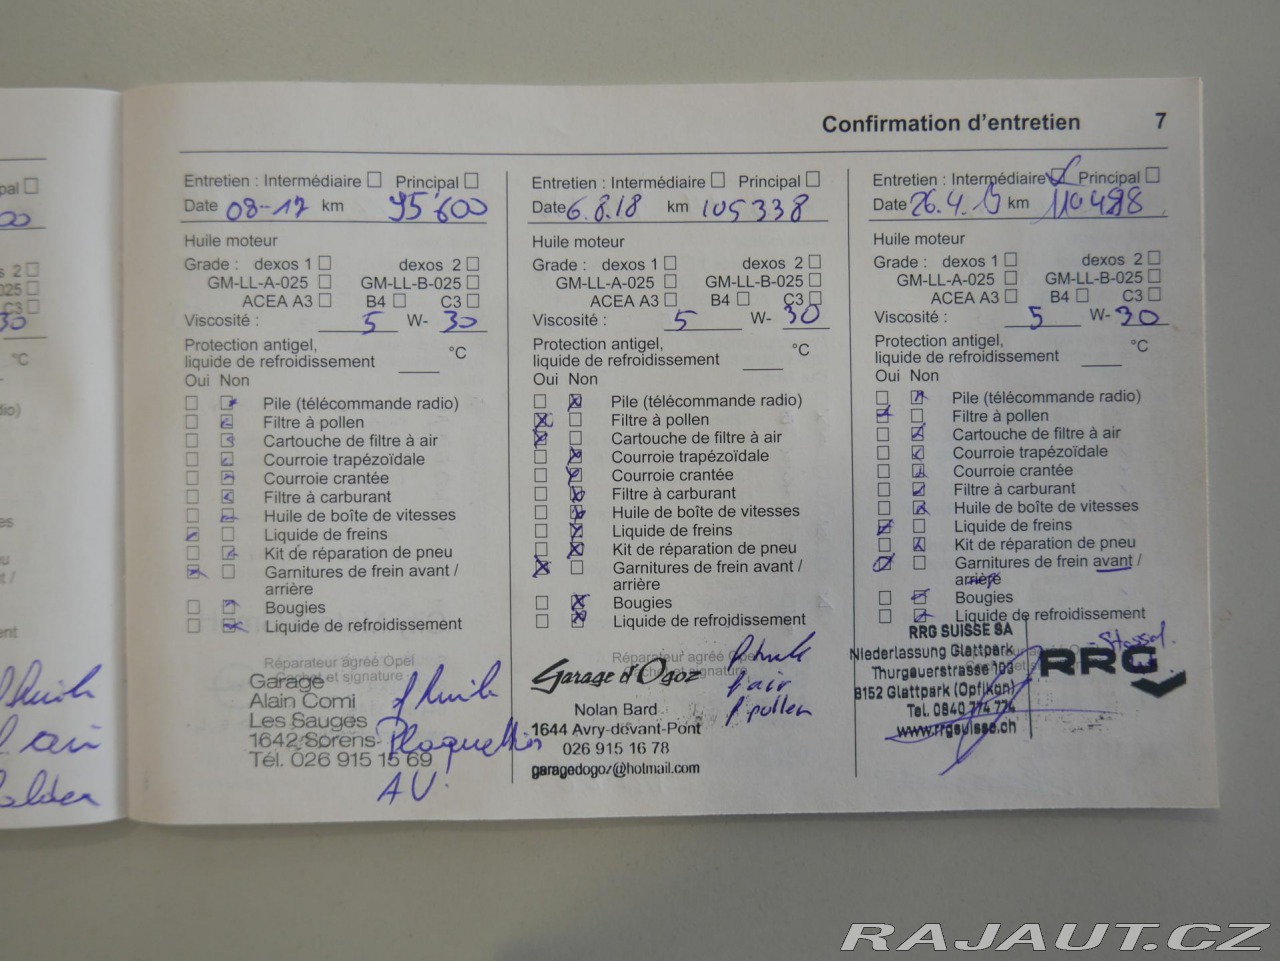 Confirmation d'entretien 7
pal
00
s 2
025
C3
30
°C
dio)
es
u
t /
ent
f huile
f air
Entretien : Intermédiaire Principal
Date 08-17 km 95'600
Huile moteur
Grade : dexos 1 dexos 2
GM-LL-A-025 GM-LL-B-025
ACEA A3 B4 C3
Viscosité : 5 W- 30
Protection antigel,
liquide de refroidissement °C
Oui Non
Pile (télécommande radio)
Filtre à pollen
Cartouche de filtre à air
Courroie trapézoïdale
Courroie crantée
Filtre à carburant
Huile de boîte de vitesses
Liquide de freins
Kit de réparation de pneu
Garnitures de frein avant /
arrière
Bougies
Liquide de refroidissement
Réparateur agréé Opel
Cachet et signature
Garage
Alain Comi
Les Sauges
1642 Sorens
Tél. 026 915 15 69
f huile
Plaquettes
AV.
Entretien : Intermédiaire Principal
Date 6.8.18 km 105338
Huile moteur
Grade : dexos 1 dexos 2
GM-LL-A-025 GM-LL-B-025
ACEA A3 B4 C3
Viscosité : 5 W- 30
Protection antigel,
liquide de refroidissement °C
Oui Non
Pile (télécommande radio)
Filtre à pollen
Cartouche de filtre à air
Courroie trapézoïdale
Courroie crantée
Filtre à carburant
Huile de boîte de vitesses
Liquide de freins
Kit de réparation de pneu
Garnitures de frein avant /
arrière
Bougies
Liquide de refroidissement
Réparateur agréé Opel
Cachet et signature
Garage d'Ogoz
Nolan Bard
1644 Avry-devant-Pont
026 915 16 78
garagedogoz@hotmail.com
f huile
f air
f pollen
Entretien : Intermédiaire Principal
Date 26.4.19 km 110498
Huile moteur
Grade : dexos 1 dexos 2
GM-LL-A-025 GM-LL-B-025
ACEA A3 B4 C3
Viscosité : 5 W- 30
Protection antigel,
liquide de refroidissement °C
Oui Non
Pile (télécommande radio)
Filtre à pollen
Cartouche de filtre à air
Courroie trapézoïdale
Courroie crantée
Filtre à carburant
Huile de boîte de vitesses
Liquide de freins
Kit de réparation de pneu
Garnitures de frein avant /
arrière
Bougies
Liquide de refroidissement
RRG SUISSE SA
Niederlassung Glattpark
Thurgauerstrasse 103
8152 Glattpark (Opfikon)
Tel. 0840 774 774
www.rrgsuisse.ch
RRG
RAJAUT.CZ